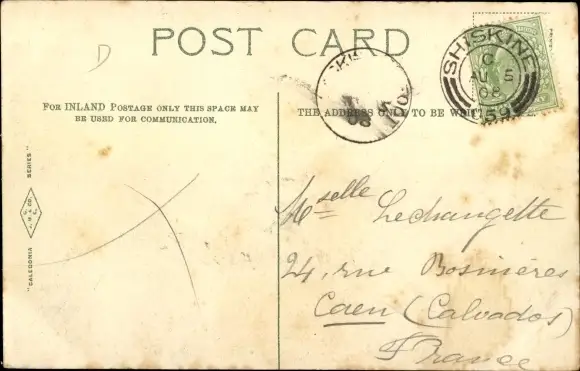 POST CARD
D
FOR INLAND POSTAGE ONLY THIS SPACE MAY
BE USED FOR COMMUNICATION.
THE ADDRESS ONLY TO BE
SHISKINE
C
AU 5
08
159
"CALEDONIA SERIES"
Mselle Lechangette
24, rue Bosnières
Caen (Calvados)
France